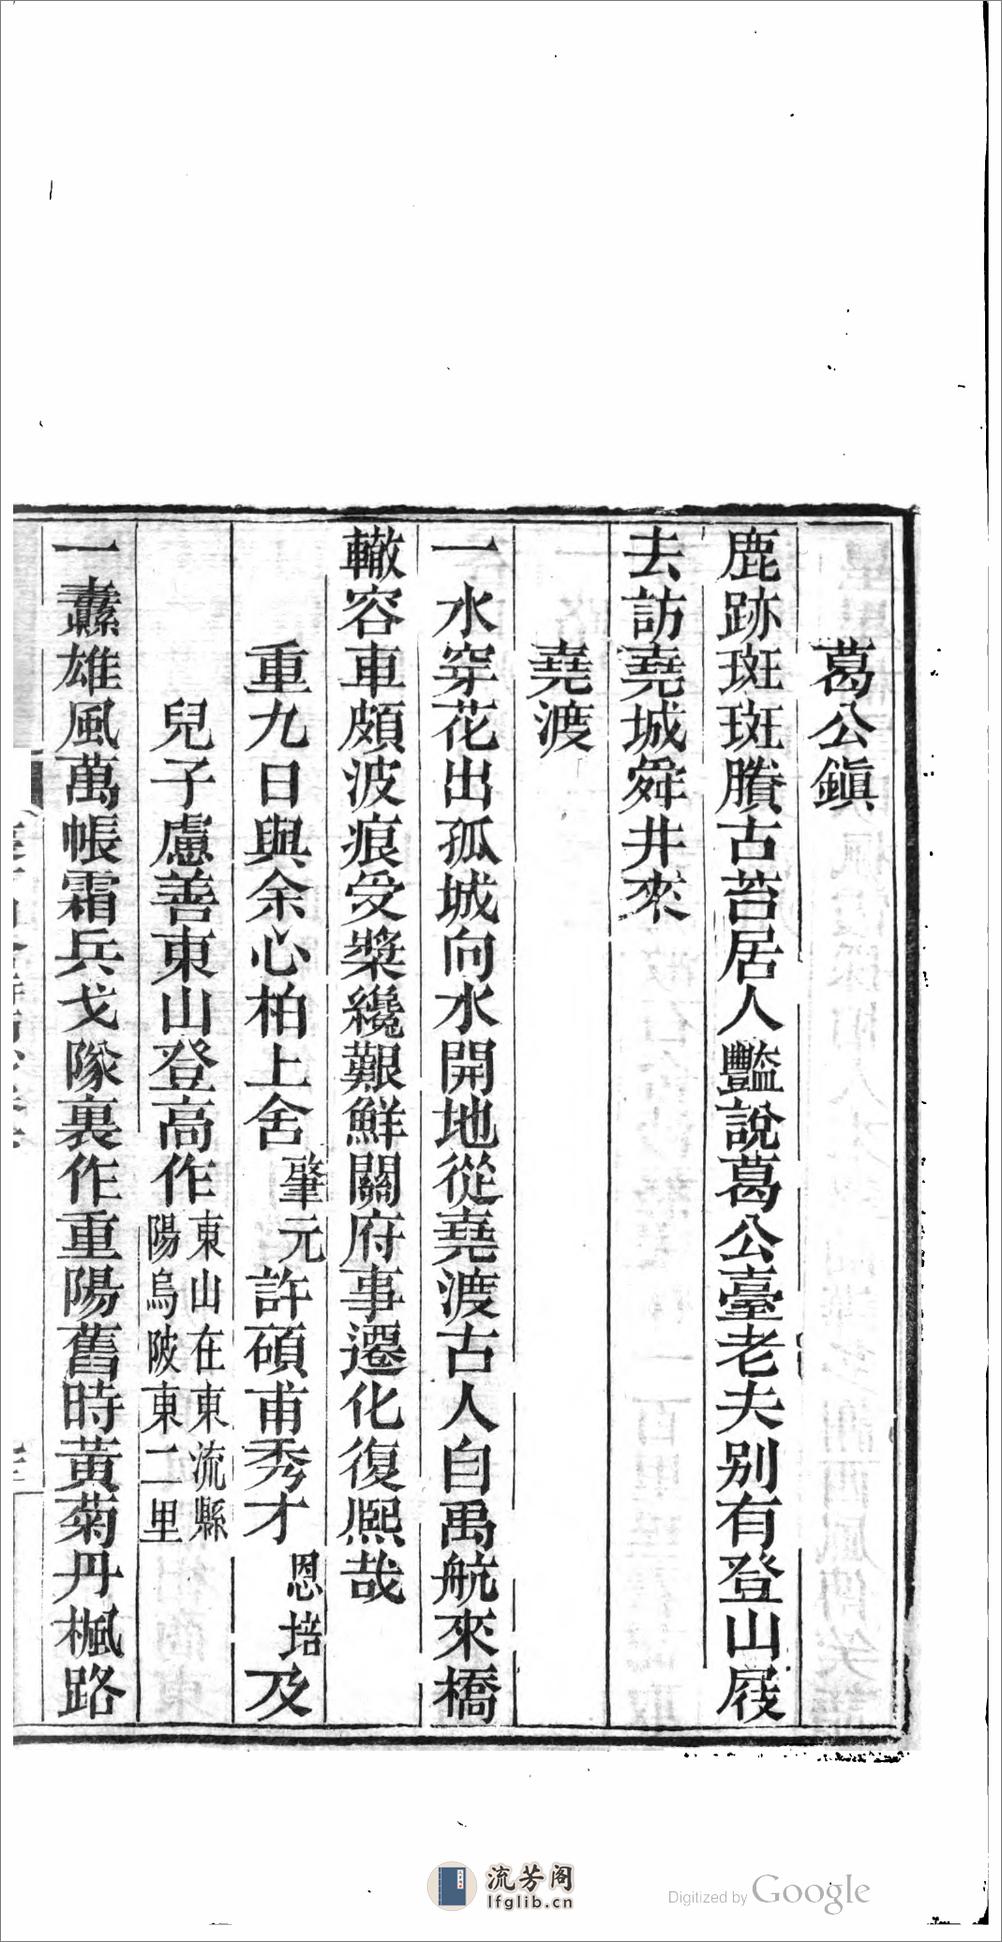 葛公鎮
鹿跡斑斑賸古苔居人豔說葛公臺老夫別有登山屐
去訪堯城舜井來
堯渡
一水穿花出孤城向水開地從堯渡古人自禹航來橋
轍容車頗波痕受槳纔艱鮮關府事遷化復熙哉
重九日與余心柏上舍肇元許碩甫秀才恩培及
兒子慮善東山登高作東山在東流縣
陽烏陂東二里
一纛雄風萬帳霜兵戈隊裏作重陽舊時黃菊丹楓路
流芳阁
lfglib.cn
Digitized by Google